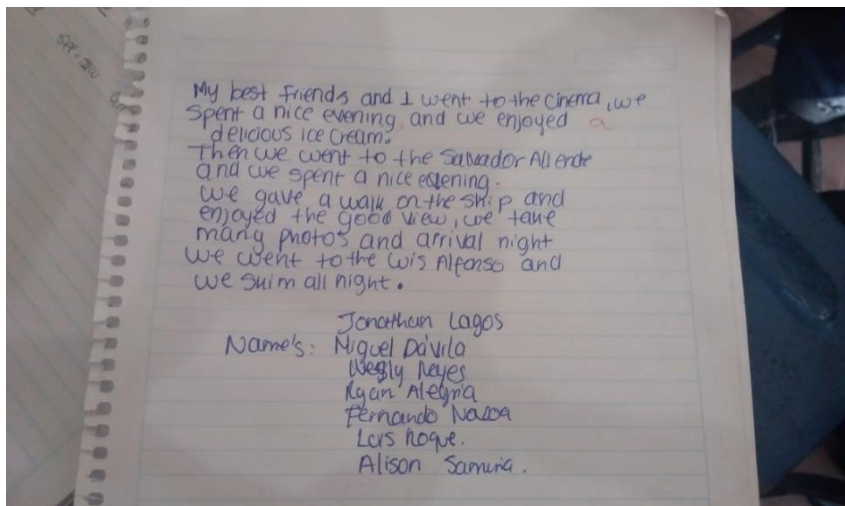 My best friends and I went to the cinema, we
spent a nice evening, and we enjoyed a
delicious ice cream.
Then we went to the Salvador Allende
and we spent a nice evening.
We gave, a walk on the ship and
enjoyed the good view, we take
many photos and arrival night
we went to the Luis Alfonso and
we suim all night.
Jonathan Lagos
Name's: Miguel Dávila
Wesly Reyes
Ryan Alegria
Fernando
Luis Roque.
Alison